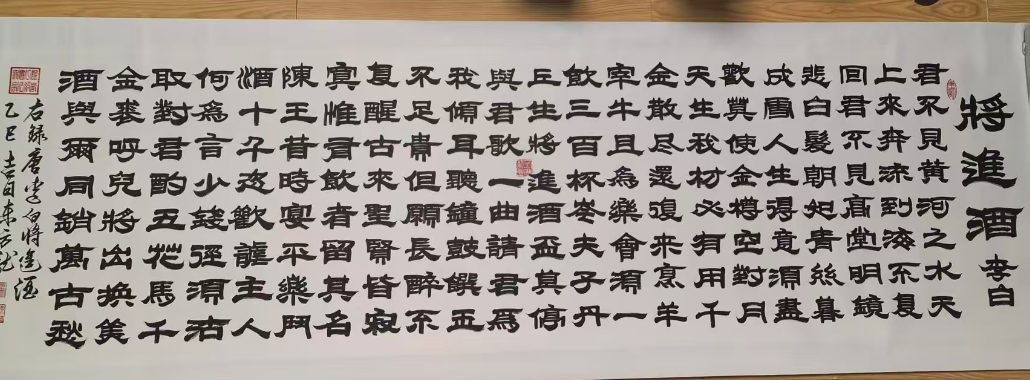 將進酒 李白
君不見黃河之水天
上來奔流到海不复
回君不見高堂明鏡
悲白髮朝如青絲暮
成雪人生得意須盡
歡莫使金樽空對月
天生我材必有用千
金散尽還復來烹羊
宰牛且為樂會須一
飲三百杯岑夫子丹
丘生將進酒盃莫停
與君歌一曲請君為
我傾耳聽鐘鼓饌玉
不足貴但願長醉不
复醒古來聖賢皆寂
寞惟有飲者留其名
陳王昔時宴平樂鬥
酒十千恣歡謔主人
何為言少錢徑須沽
取對君酌五花馬千
金裘呼兒將出換美
酒與爾同銷萬古愁
右録唐李白將進酒
乙巳吉日東方